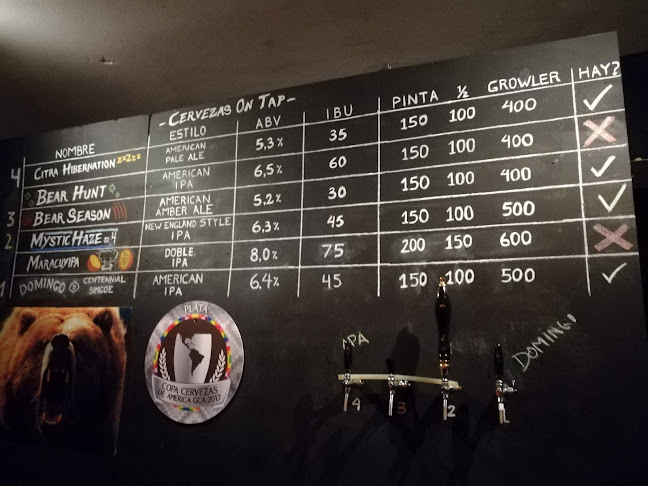 - CERVEZAS ON TAP -
NOMBRE ESTILO ABV IBU PINTA ½ GROWLER HAY?
4 CITRA HIBERNATION zzZzz AMERICAN PALE ALE 5.3% 35 150 100 400 ✓
BEAR HUNT AMERICAN IPA 6,5% 60 150 100 400 X
3 BEAR SEASON AMERICAN AMBER ALE 5.2% 30 150 100 400 ✓
2 MYSTIC HAZE #4 NEW ENGLAND STYLE IPA 6.3% 45 150 100 500 ✓
MARACUYIPA DOBLE IPA 8,0% 75 200 150 600 X
1 DOMINGO CENTENNIAL SIMCOE AMERICAN IPA 6.4% 45 150 100 500 ✓
PLATA
COPA CERVEZAS
DE AMERICA GCA 2017
APA
DOMINGO
4 3 2 1